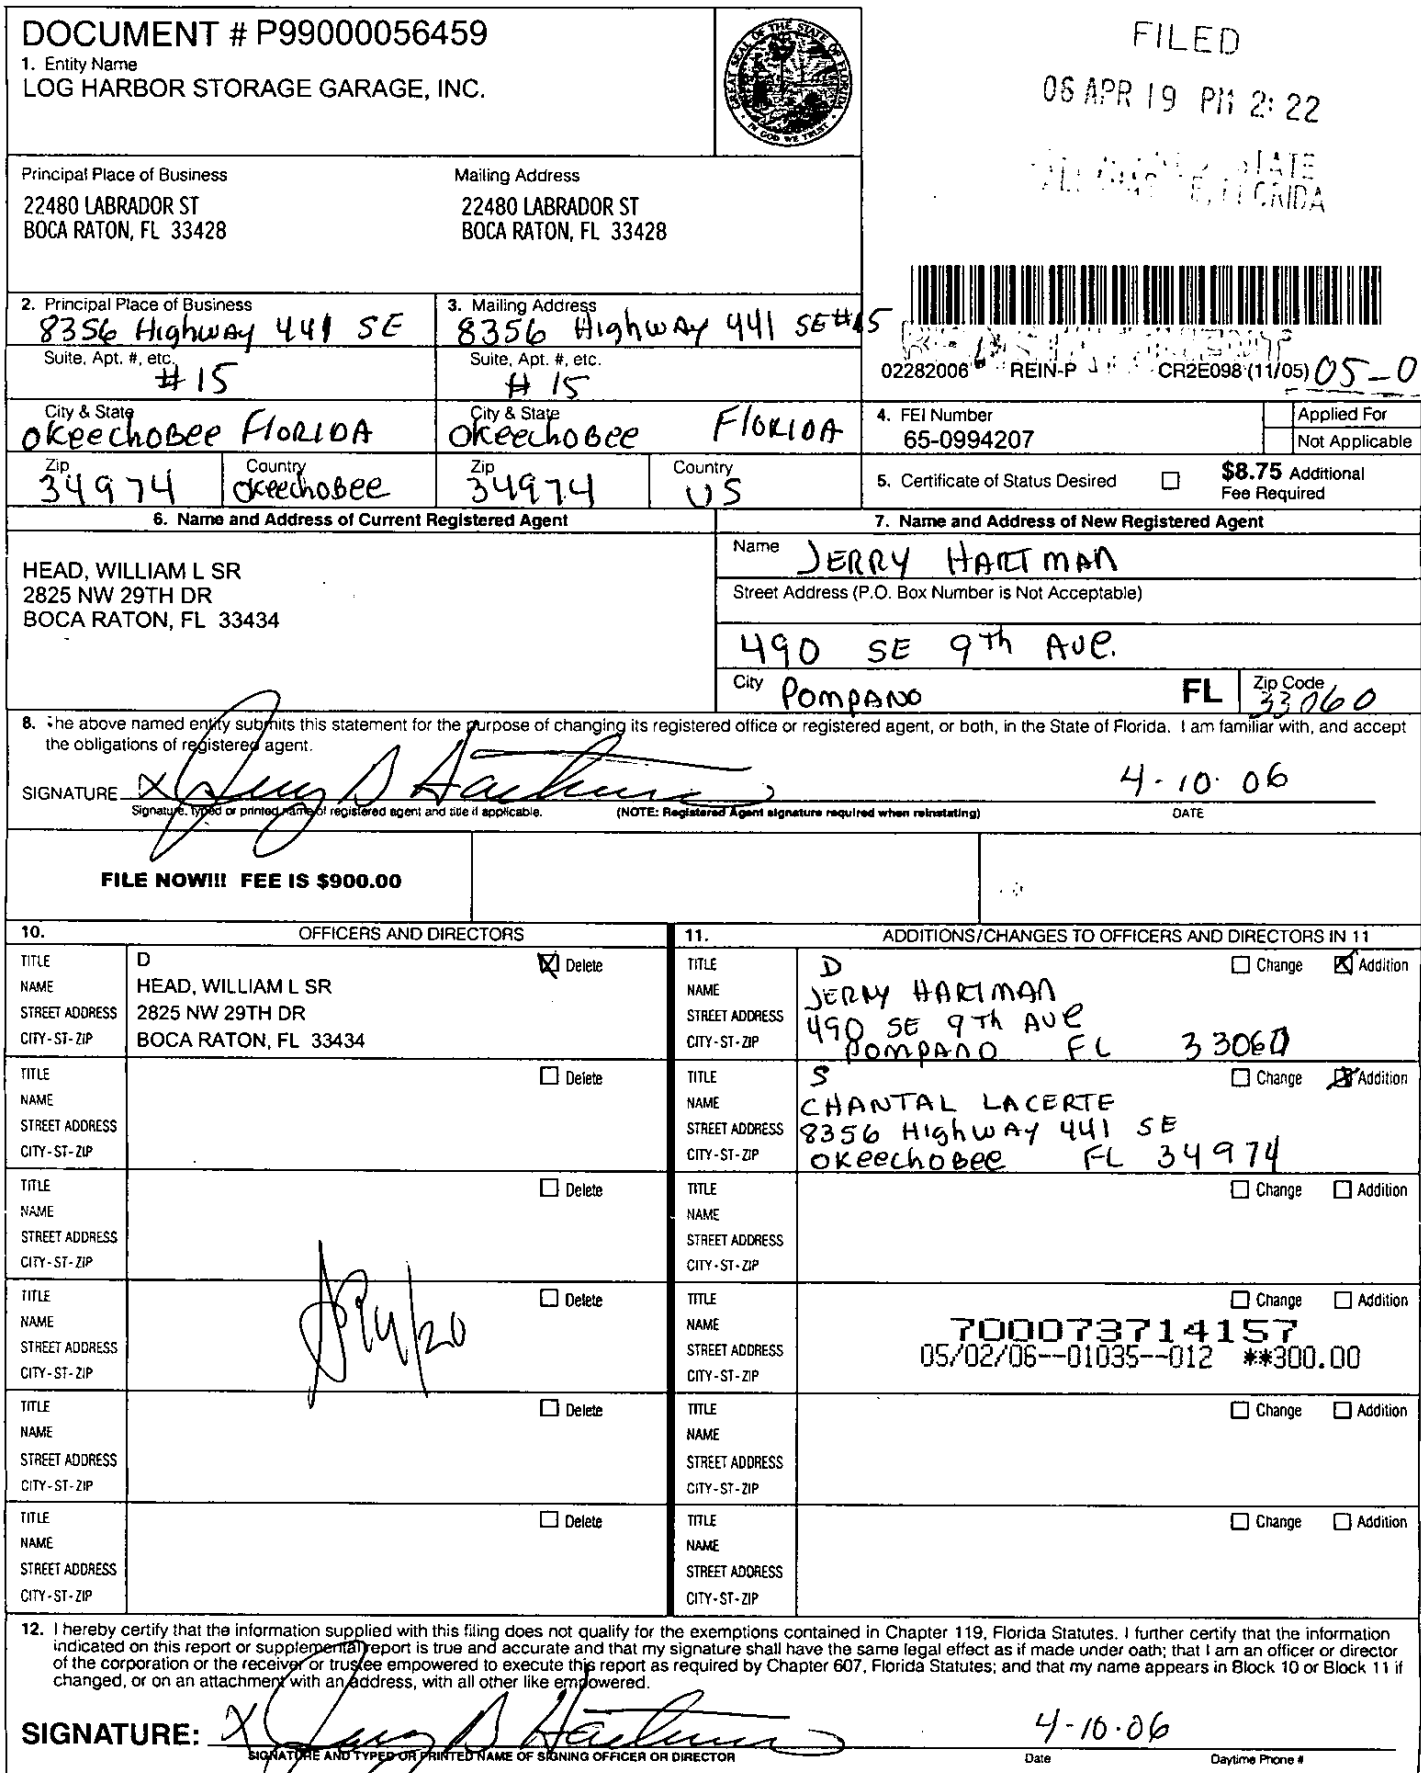 DOCUMENT # P99000056459
1. Entity Name
LOG HARBOR STORAGE GARAGE, INC.
GREAT SEAL OF THE STATE OF FLORIDA
IN GOD WE TRUST
FILED
06 APR 19 PM 2:22
STATE
FLORIDA
Principal Place of Business
22480 LABRADOR ST
BOCA RATON, FL 33428
Mailing Address
22480 LABRADOR ST
BOCA RATON, FL 33428
2. Principal Place of Business
8356 Highway 441 SE
3. Mailing Address
8356 HighwAy 441 SE#15
Suite, Apt. #, etc.
#15
Suite, Apt. #, etc.
# 15
02282006 REIN-P CR2E098 (11/05) 05-0
City & State
OKeechoBee FloRIDA
City & State
OKeechoBee FloRIDA
4. FEI Number
65-0994207
Applied For
Not Applicable
Zip
34974
Country
OKeechoBee
Zip
34974
Country
US
5. Certificate of Status Desired
$8.75 Additional
Fee Required
6. Name and Address of Current Registered Agent
HEAD, WILLIAM L SR
2825 NW 29TH DR
BOCA RATON, FL 33434
7. Name and Address of New Registered Agent
Name JERRY HARTMAN
Street Address (P.O. Box Number is Not Acceptable)
490 SE 9th Ave.
City POMPANO FL Zip Code 33060
8. The above named entity submits this statement for the purpose of changing its registered office or registered agent, or both, in the State of Florida. I am familiar with, and accept
the obligations of registered agent.
SIGNATURE X Jerry B Hartman 4-10-06
Signature, typed or printed name of registered agent and title if applicable. (NOTE: Registered Agent signature required when reinstating) DATE
FILE NOW!!! FEE IS $900.00
10. OFFICERS AND DIRECTORS
TITLE D Delete
NAME HEAD, WILLIAM L SR
STREET ADDRESS 2825 NW 29TH DR
CITY-ST-ZIP BOCA RATON, FL 33434
TITLE Delete
NAME
STREET ADDRESS
CITY-ST-ZIP
TITLE Delete
NAME
STREET ADDRESS
CITY-ST-ZIP
TITLE Delete
NAME
STREET ADDRESS
CITY-ST-ZIP
4/20
TITLE Delete
NAME
STREET ADDRESS
CITY-ST-ZIP
TITLE Delete
NAME
STREET ADDRESS
CITY-ST-ZIP
11. ADDITIONS/CHANGES TO OFFICERS AND DIRECTORS IN 11
TITLE D Change Addition
NAME JERRY HARTMAN
STREET ADDRESS 490 SE 9Th AVE
CITY-ST-ZIP POMPANO FL 33060
TITLE S Change Addition
NAME CHANTAL LACERTE
STREET ADDRESS 8356 HighwAy 441 SE
CITY-ST-ZIP OKeechoBee FL 34974
TITLE Change Addition
NAME
STREET ADDRESS
CITY-ST-ZIP
TITLE Change Addition
NAME 700073714157
STREET ADDRESS 05/02/06--01035--012 **300.00
CITY-ST-ZIP
TITLE Change Addition
NAME
STREET ADDRESS
CITY-ST-ZIP
TITLE Change Addition
NAME
STREET ADDRESS
CITY-ST-ZIP
12. I hereby certify that the information supplied with this filing does not qualify for the exemptions contained in Chapter 119, Florida Statutes. I further certify that the information
indicated on this report or supplemental report is true and accurate and that my signature shall have the same legal effect as if made under oath; that I am an officer or director
of the corporation or the receiver or trustee empowered to execute this report as required by Chapter 607, Florida Statutes; and that my name appears in Block 10 or Block 11 if
changed, or on an attachment with an address, with all other like empowered.
SIGNATURE: X Jerry B Hartman 4-10-06
SIGNATURE AND TYPED OR PRINTED NAME OF SIGNING OFFICER OR DIRECTOR Date Daytime Phone #